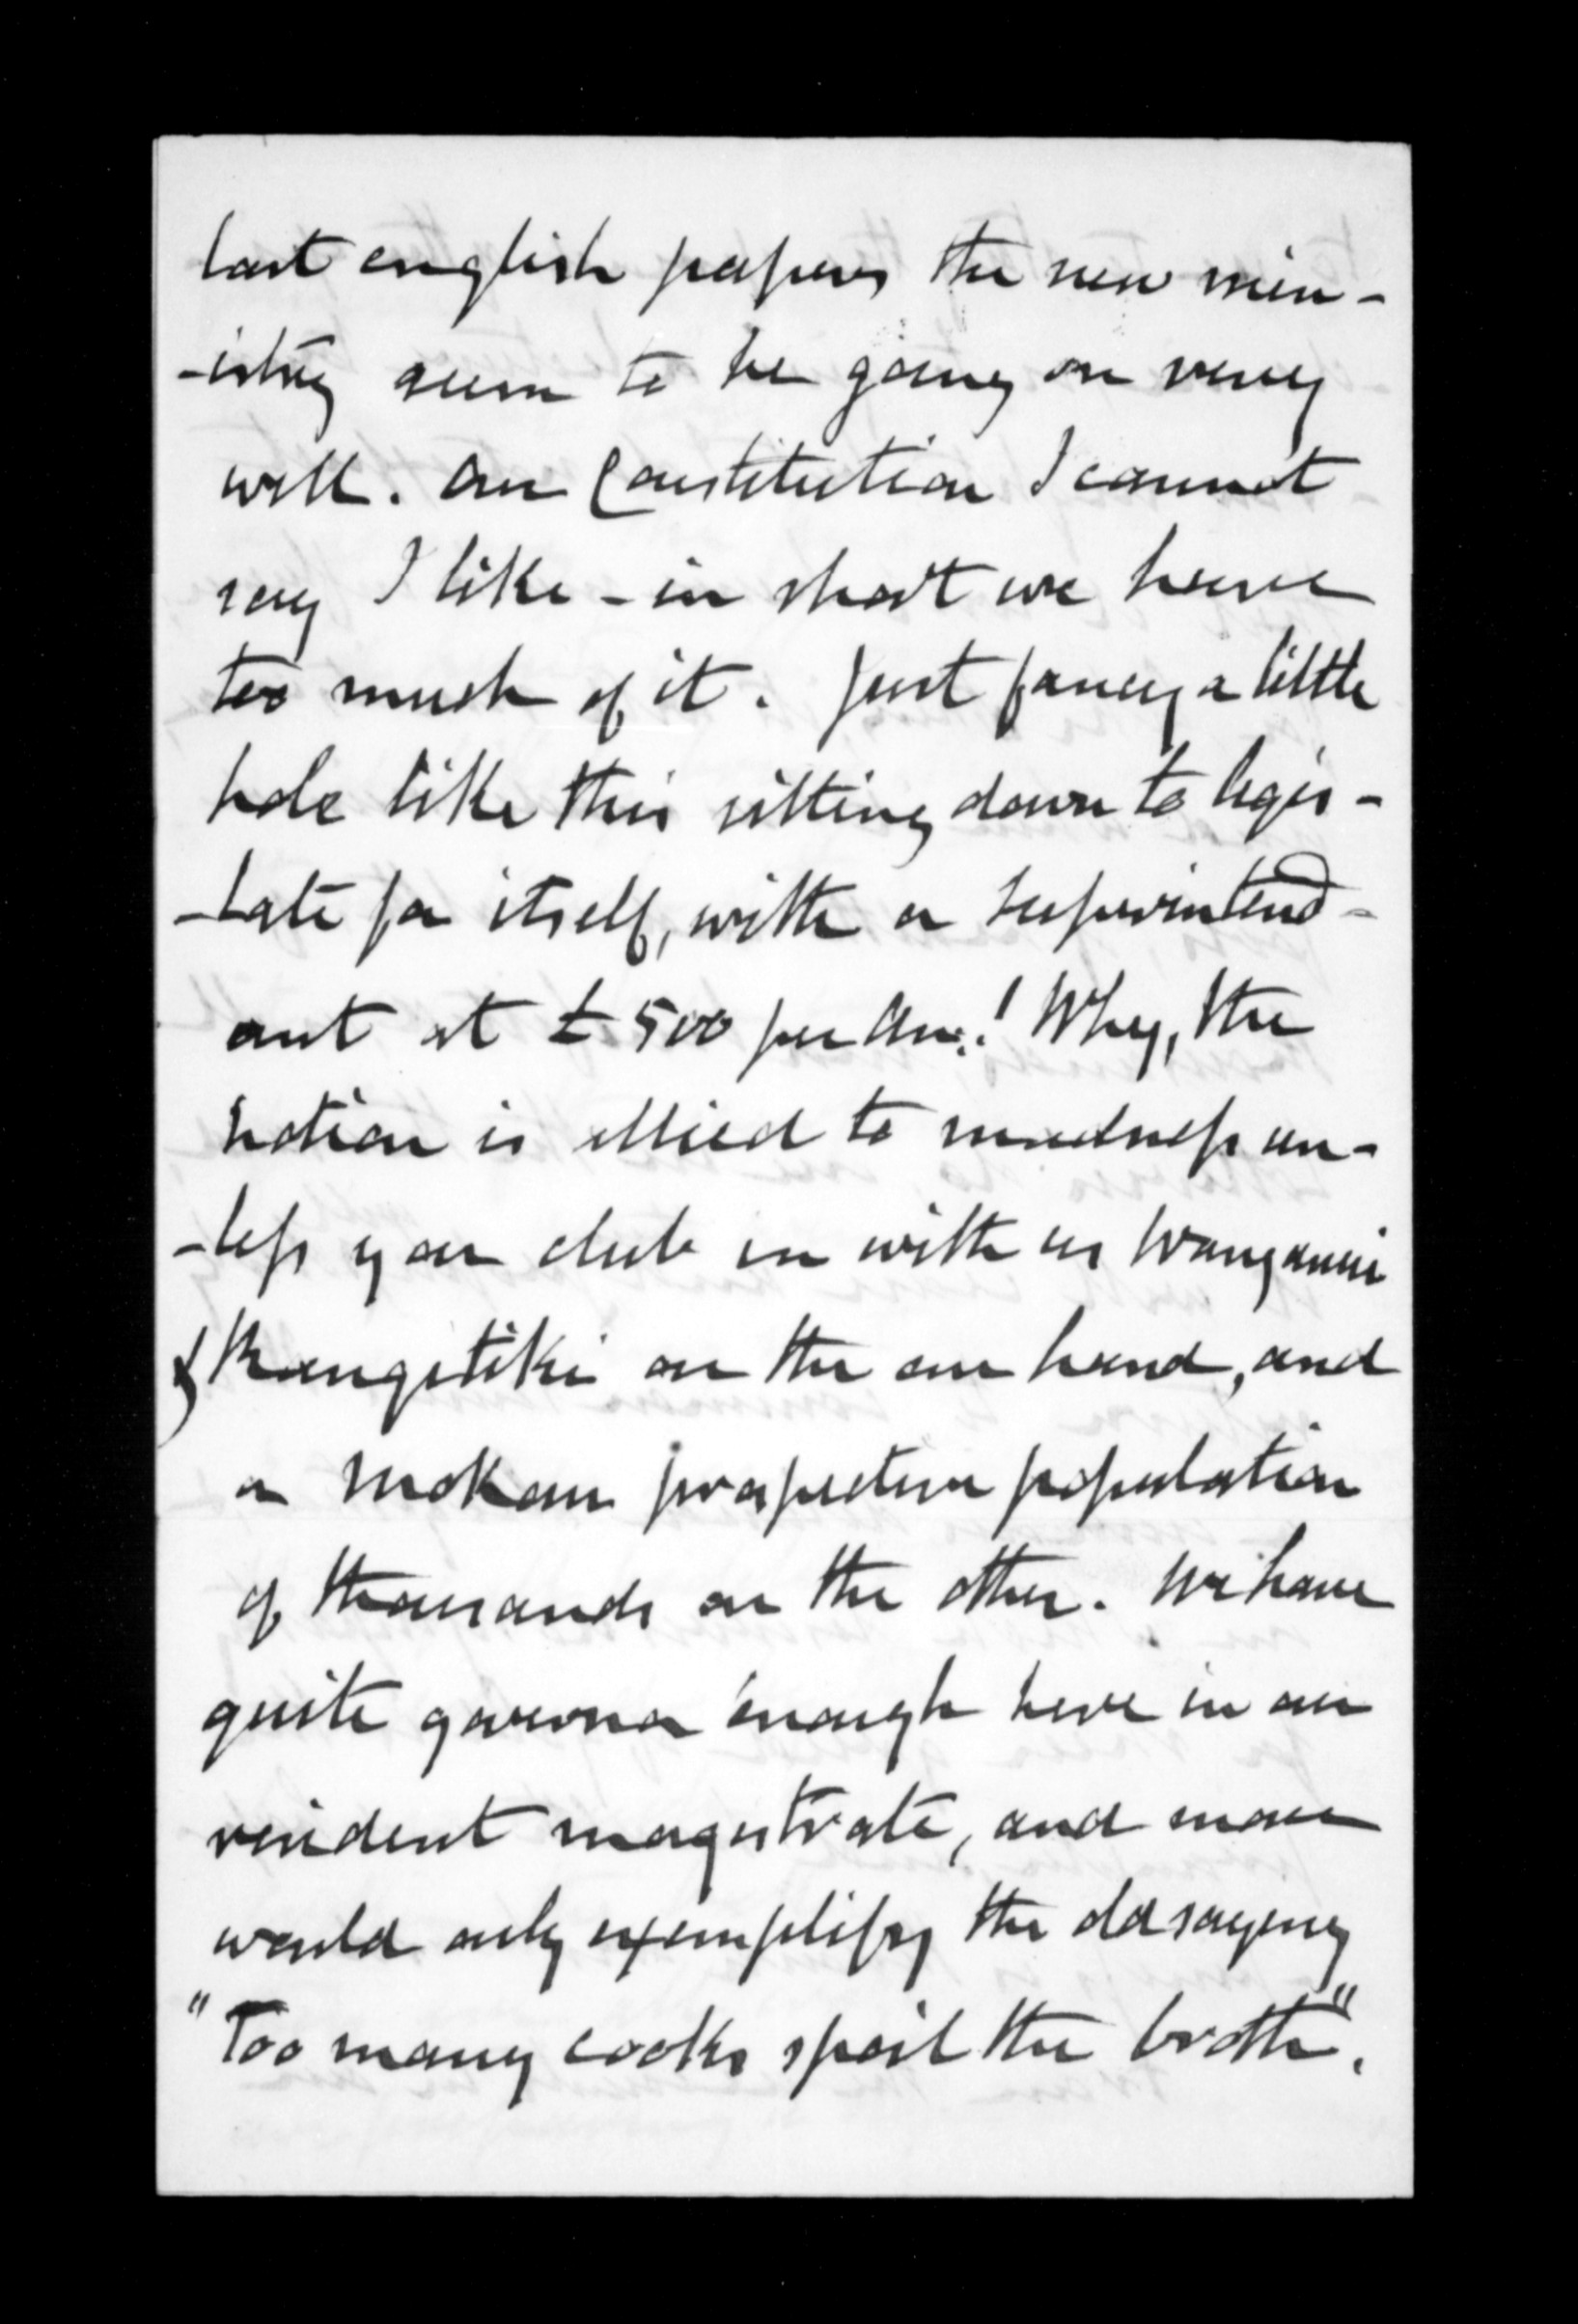 last english papers the new min-
-istry seem to be going on very
well. Our Constitution I cannot
say I like - in short we have
too much of it. Just fancy a little
hole like this sitting down to legis-
-late for itself, with a Superintend-
ant at £500 per An:! Why, the
notion is allied to madness un-
-less you club in with us Wanganui
& Rangitiki on the one hand, and
a Mokau prospective population
of thousands on the other. We have
quite governor enough here in our
resident magistrate, and more
would only exemplify the old saying
"Too many cooks spoil the broth".